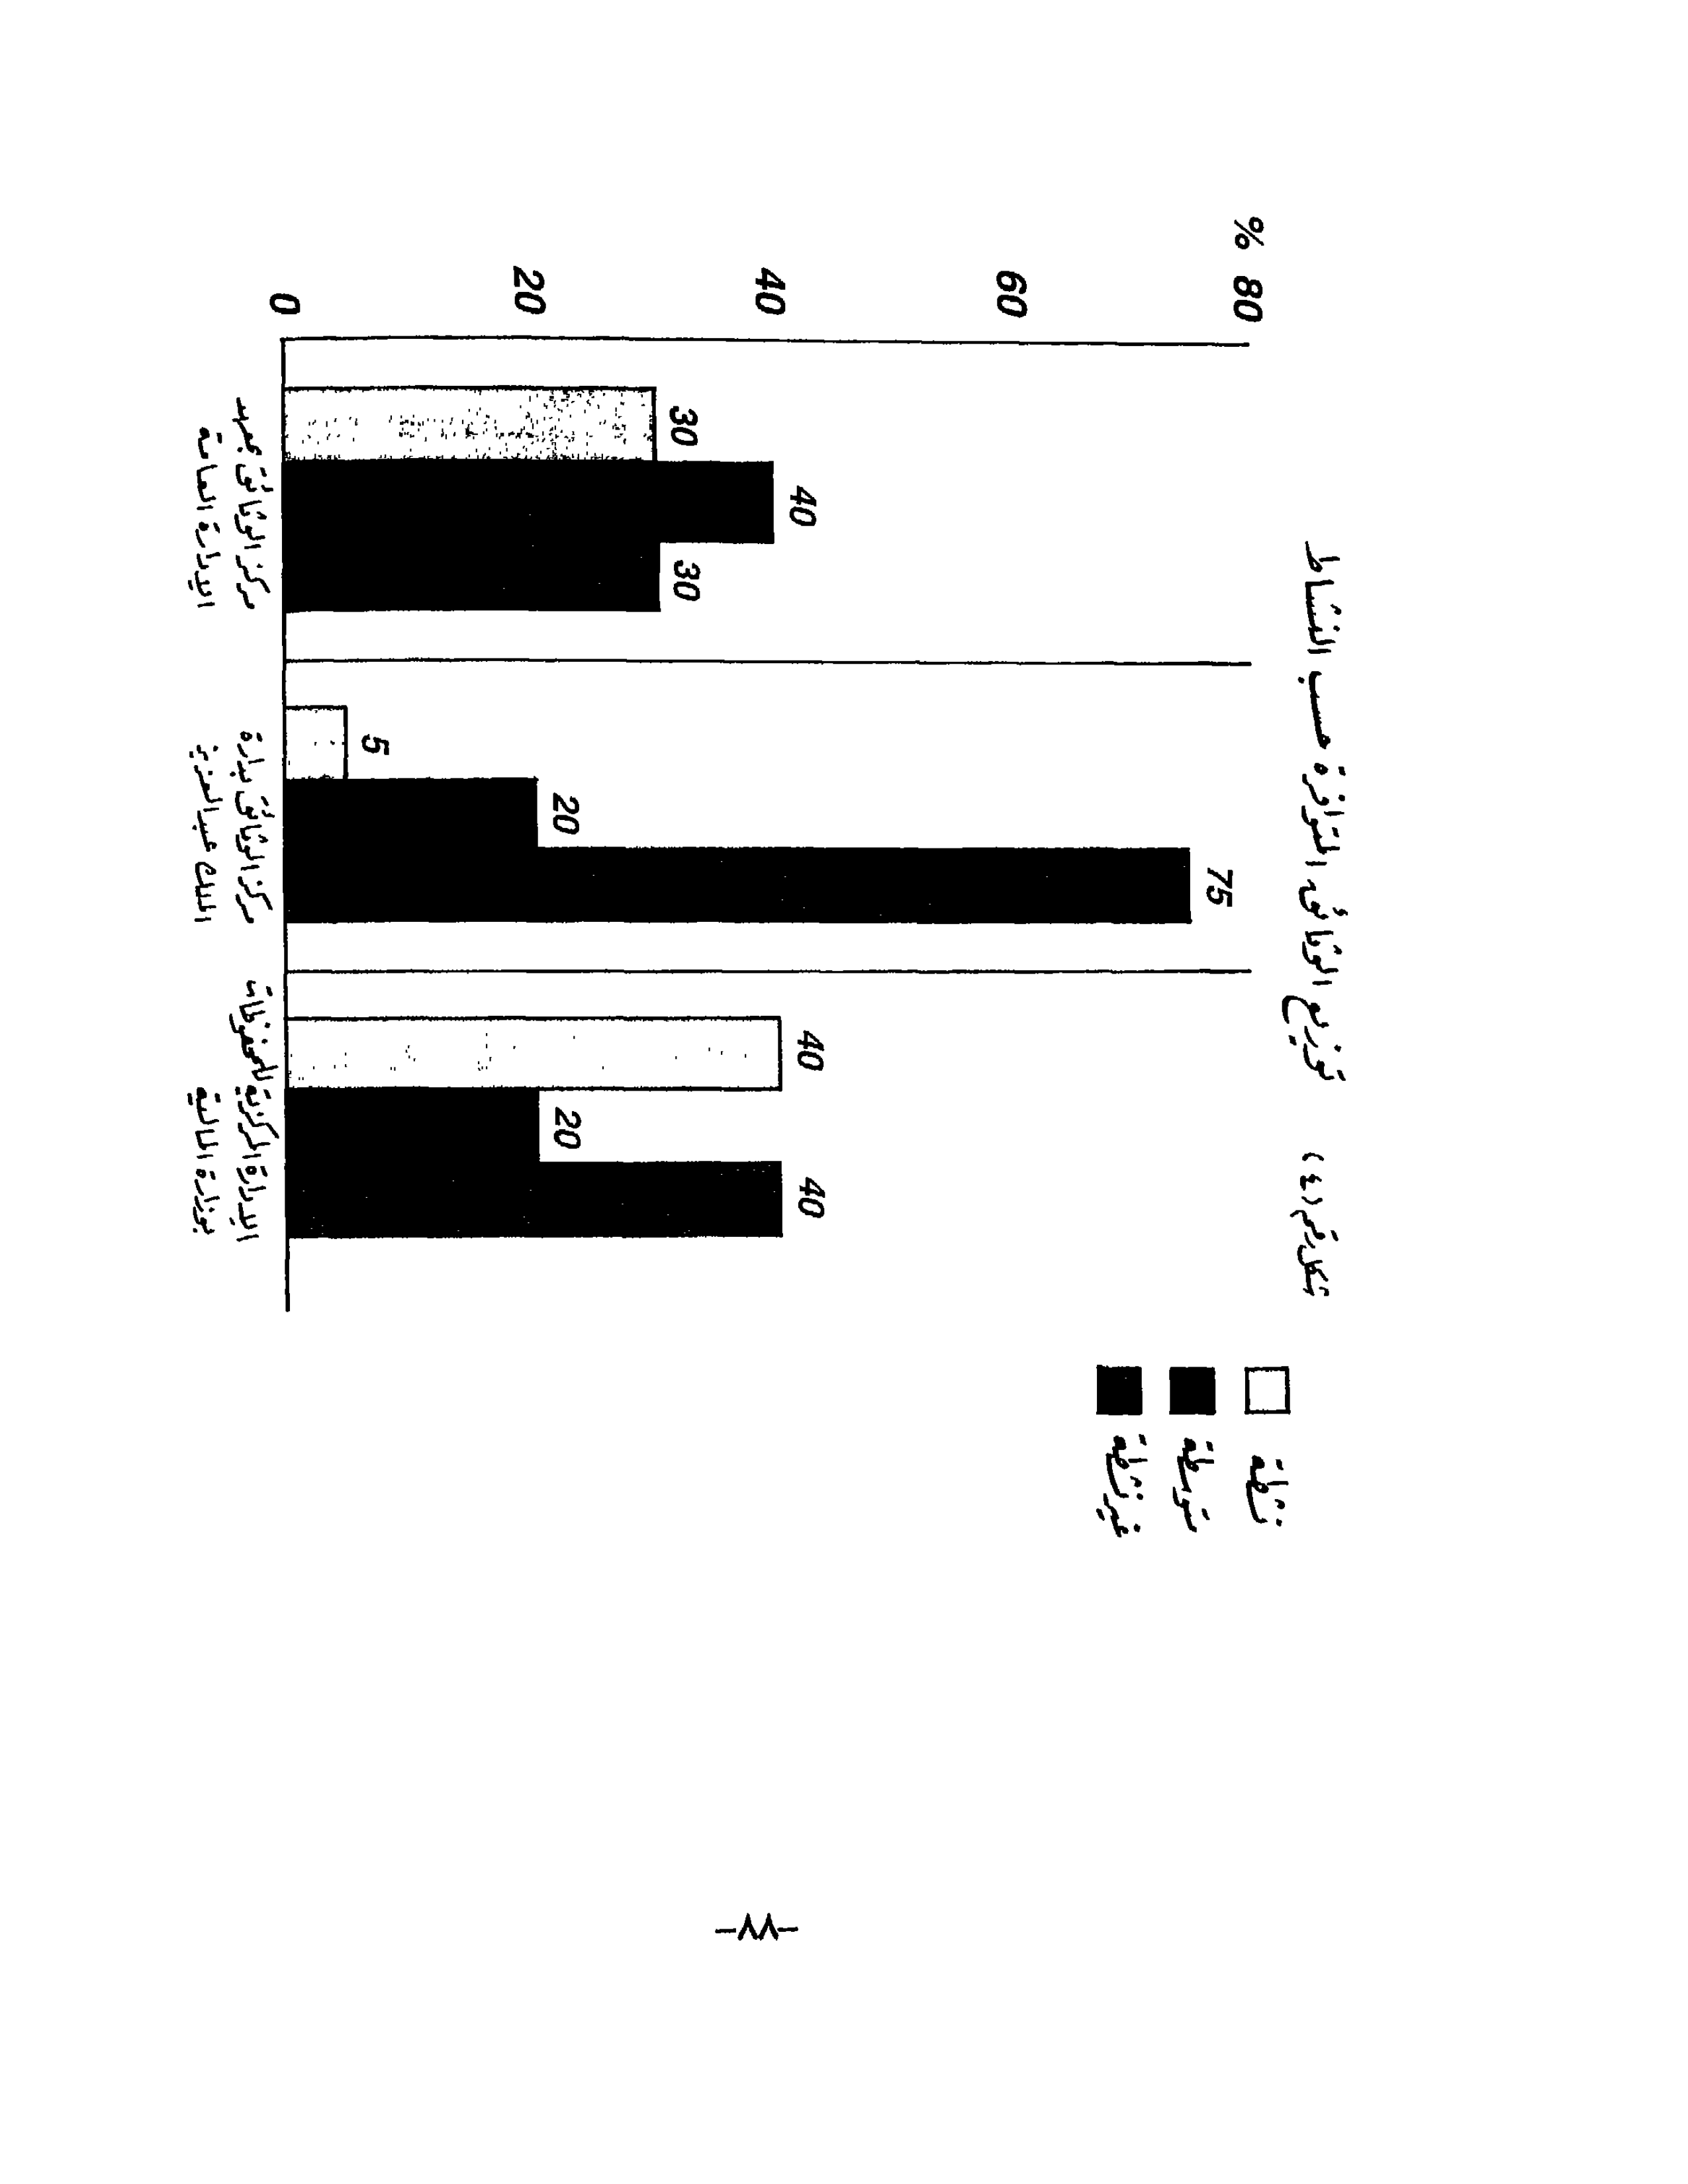 شكل رقم (٤) توزيع الوثائق المتوافرة حسب النشاط
نشطة
متوسطة
غير نشطة
% 80
60
40
20
0
30
40
30
5
20
75
40
20
40
مركز الوثائق بمعهد
الإدارة العامة
مركز الوثائق بدارة
الملك عبدالعزيز
الإدارة المركزية للمحفوظات
بوزارة المالية
-٧٧-